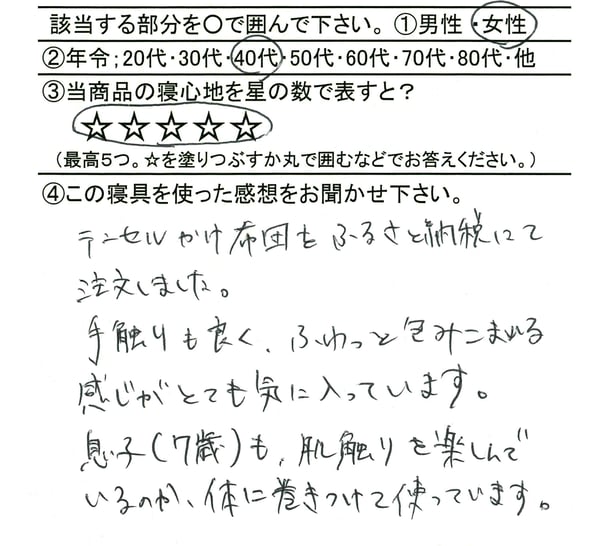 該当する部分を〇で囲んで下さい。①男性・女性
②年令;20代・30代・40代・50代・60代・70代・80代・他
③当商品の寝心地を星の数で表すと?
☆☆☆☆☆
(最高5つ。☆を塗りつぶすか丸で囲むなどでお答えください。)
④この寝具を使った感想をお聞かせ下さい。
テンセルかけ布団をふるさと納税にて
注文しました。
手触りも良く、ふわっと包みこまれる
感じがとても気に入っています。
息子(7歳)も、肌触りを楽しんで
いるのか、体に巻きつけて使っています。